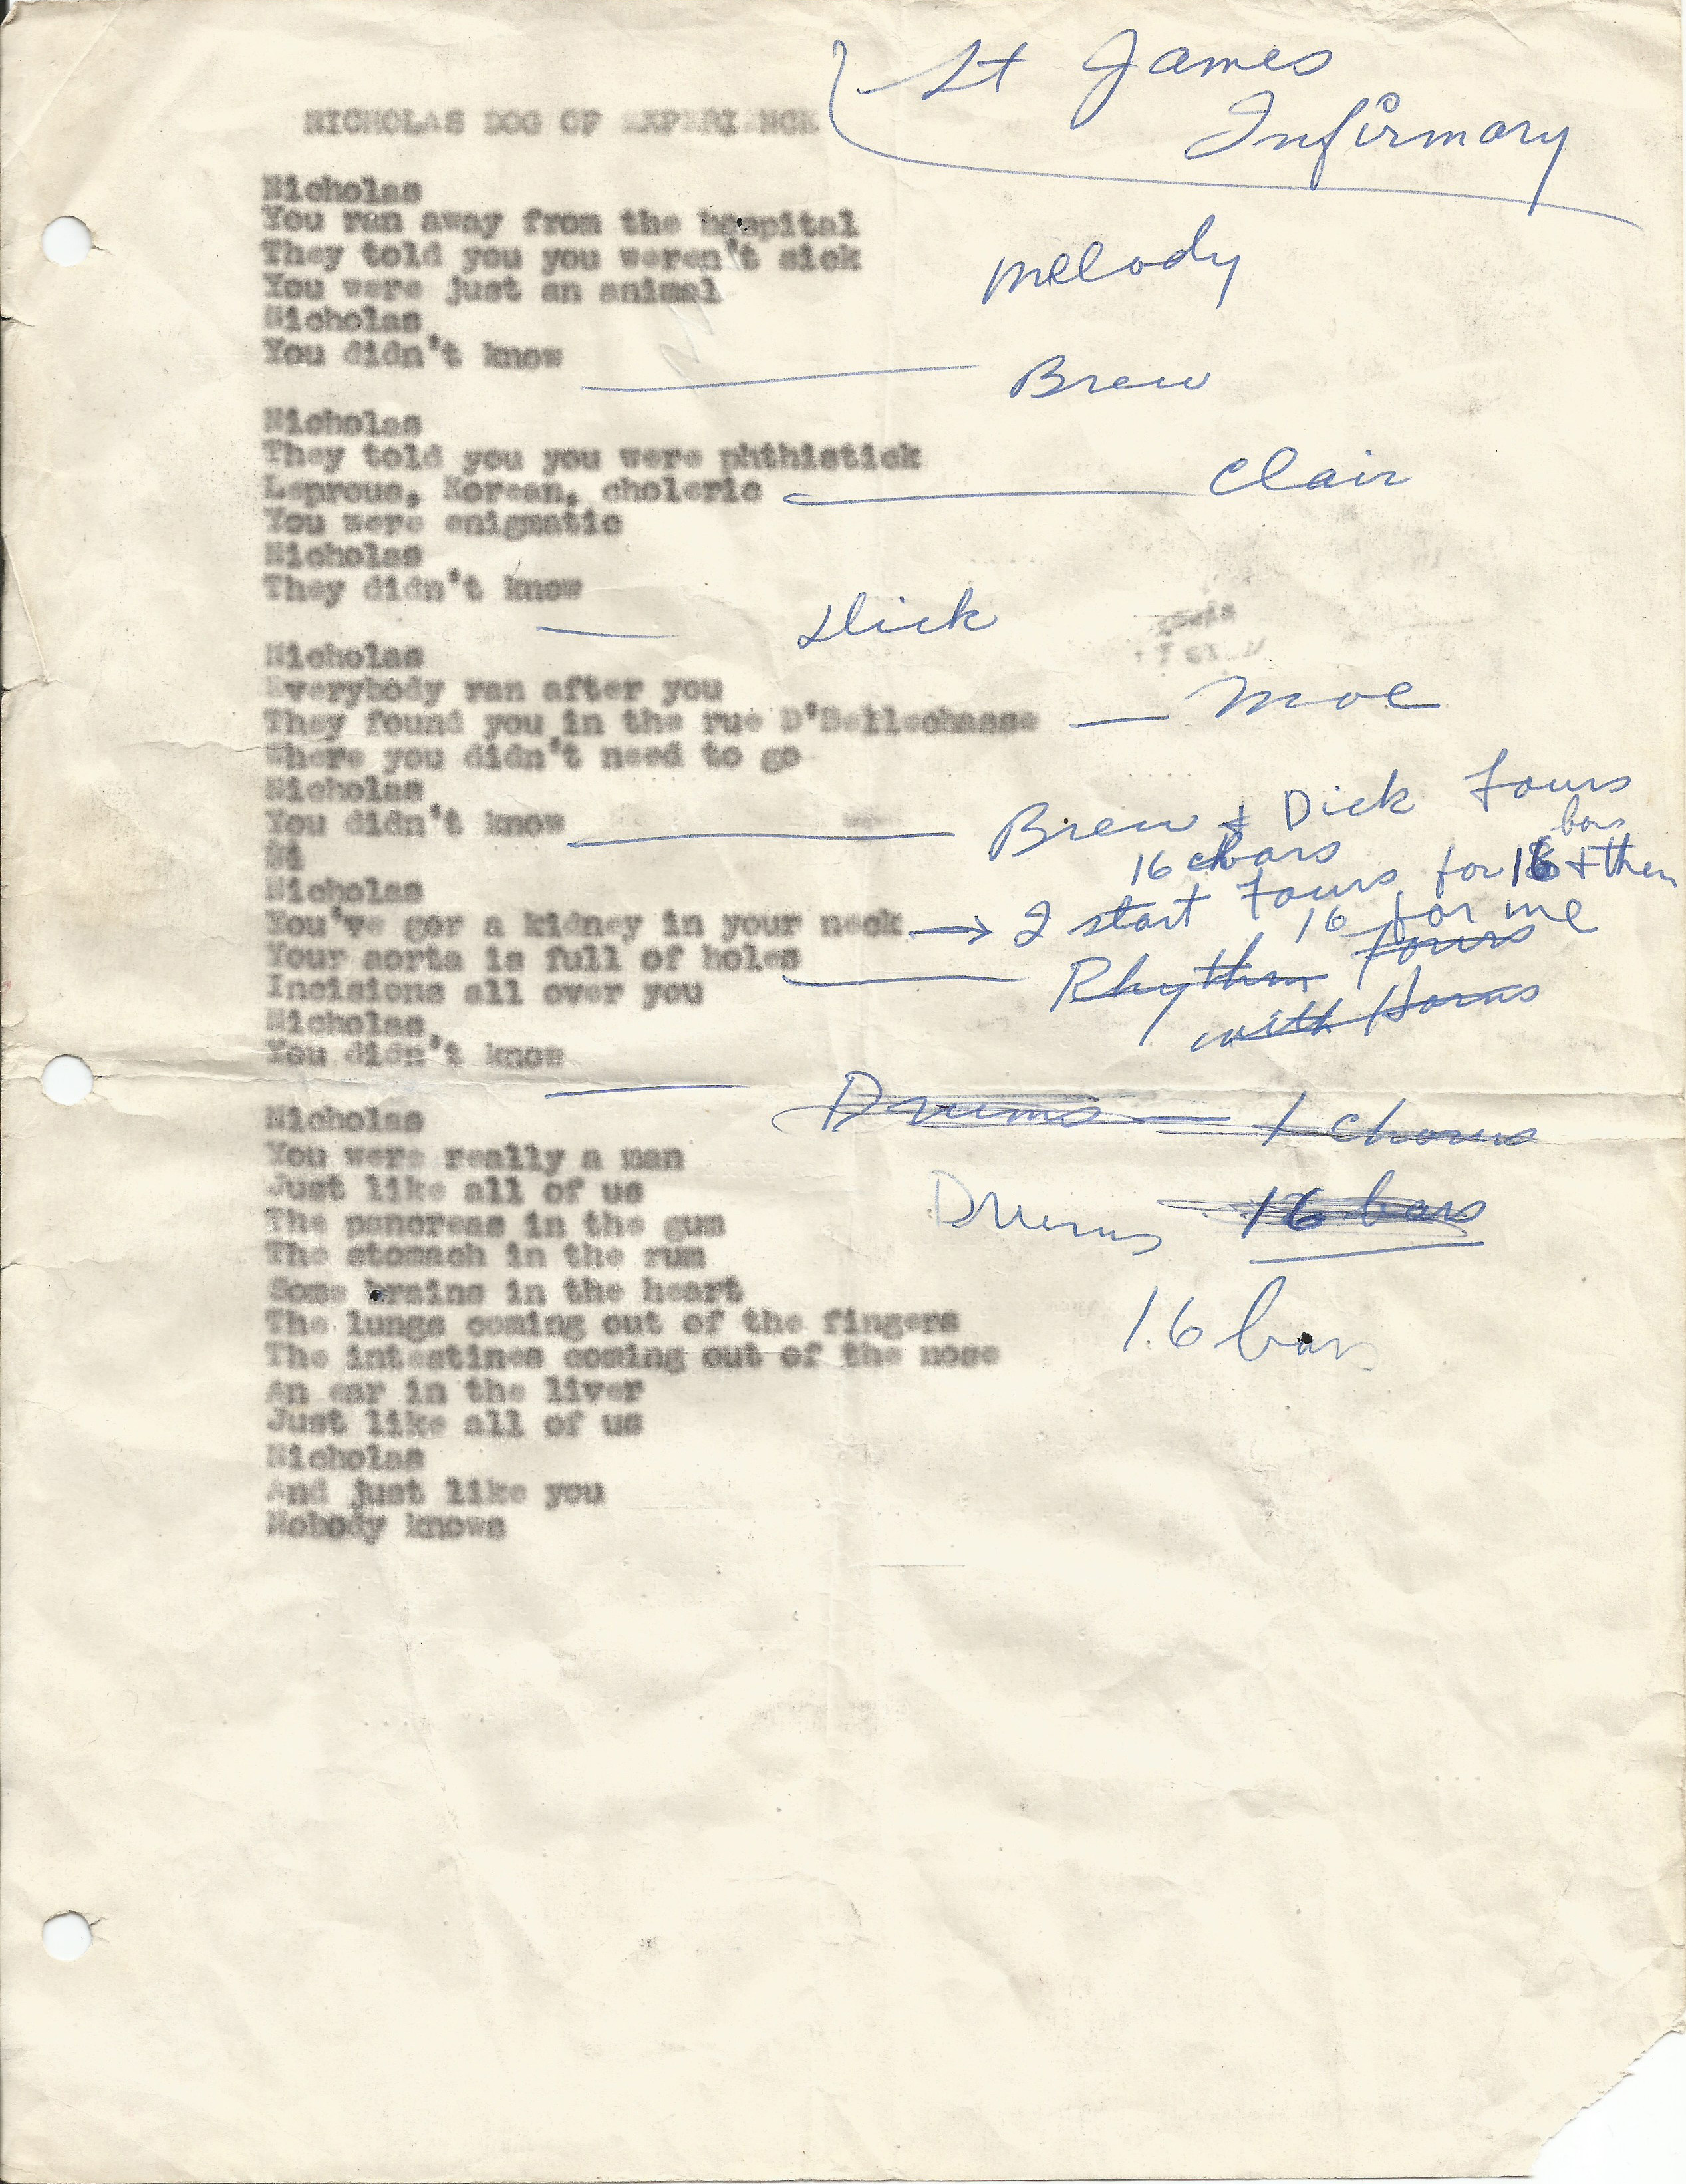 St James
Infirmary
NICHOLAS DOG OF EXPERIENCE
Nicholas
You ran away from the hospital
They told you you weren't sick
melody
You were just an animal
Nicholas
You didn't know
Brew
Nicholas
They told you you were phthistick
Leprous, Korean, choleric
Clair
You were enigmatic
Nicholas
They didn't know
Dick
Nicholas
Everybody ran after you
They found you in the rue D'Bellechasse
Moe
Where you didn't need to go
Nicholas
You didn't know
Brew + Dick Fours
16 bars
Nicholas
You've gor a kidney in your neck
I start Fours for 16 bars + then
16 for me
Your aorta is full of holes
Rhythm Fours
with Horns
Incisions all over you
Nicholas
You didn't know
Drums - 1 Chorus
Nicholas
You were really a man
Just like all of us
Drums 16 bars
The pancreas in the gum
The stomach in the rum
Some brains in the heart
The lungs coming out of the fingers
16 bars
The intestines coming out of the nose
An ear in the liver
Just like all of us
Nicholas
And just like you
Nobody knows